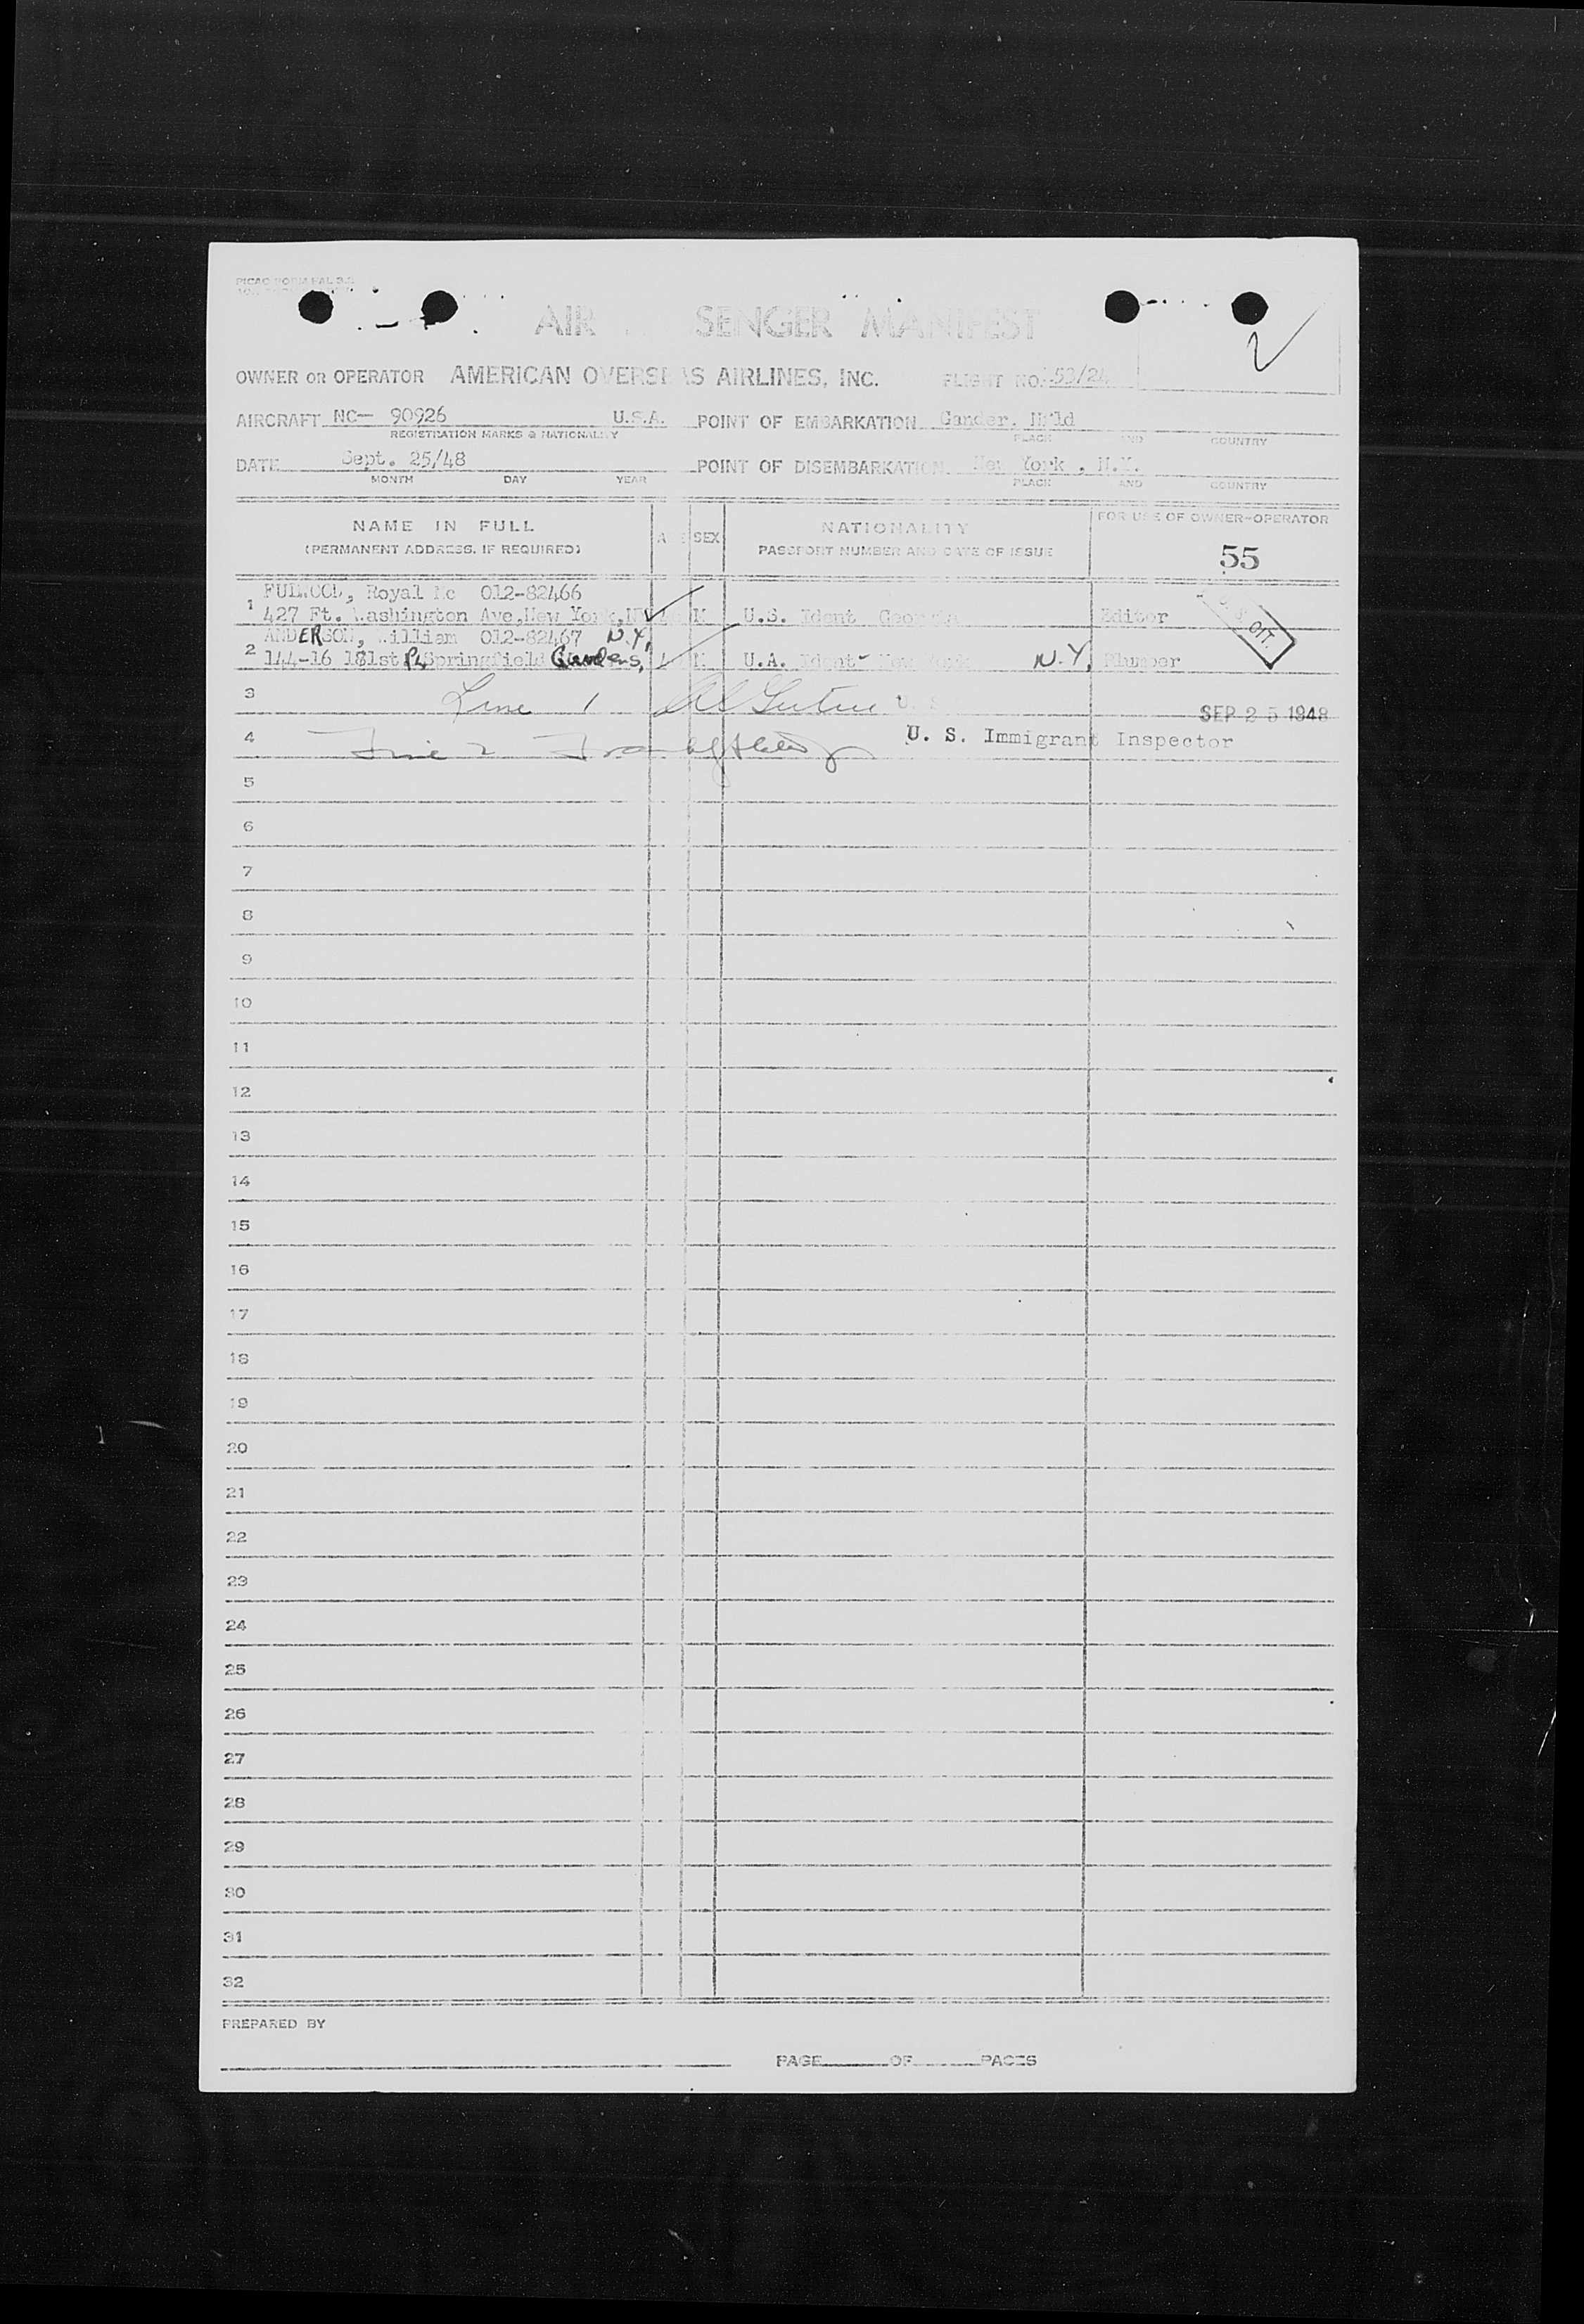 AIR SENGER MANIFEST
OWNER OR OPERATOR AMERICAN OVERSEAS AIRLINES, INC. FLIGHT NO. 53/24
AIRCRAFT NC— 90926 U.S.A. POINT OF EMBARKATION Gander, Nfld
REGISTRATION MARKS & NATIONALITY PLACE AND COUNTRY
DATE Sept. 25/48 POINT OF DISEMBARKATION New York . N.Y.
MONTH DAY YEAR PLACE AND COUNTRY
NAME IN FULL
(PERMANENT ADDRESS, IF REQUIRED)
SEX
NATIONALITY
PASSPORT NUMBER AND DATE OF ISSUE
FOR USE OF OWNER-OPERATOR
55
Royal Mc 012-82466
1 427 Ft. Washington Ave, New York, M U.S. Ident Georgia Editor
ANDERSON, William 012-82467 N.Y.
2 144-16 181st PL Springfield Gardens, M U.A. Ident- New York N.Y. Plumber
CIT.
3 Line 1 U. S. SEP 25 1948
4 Line 2 U. S. Immigrant Inspector
5
6
7
8
9
10
11
12
13
14
15
16
17
18
19
20
21
22
23
24
25
26
27
28
29
30
31
32
PREPARED BY
PAGE OF PAGES